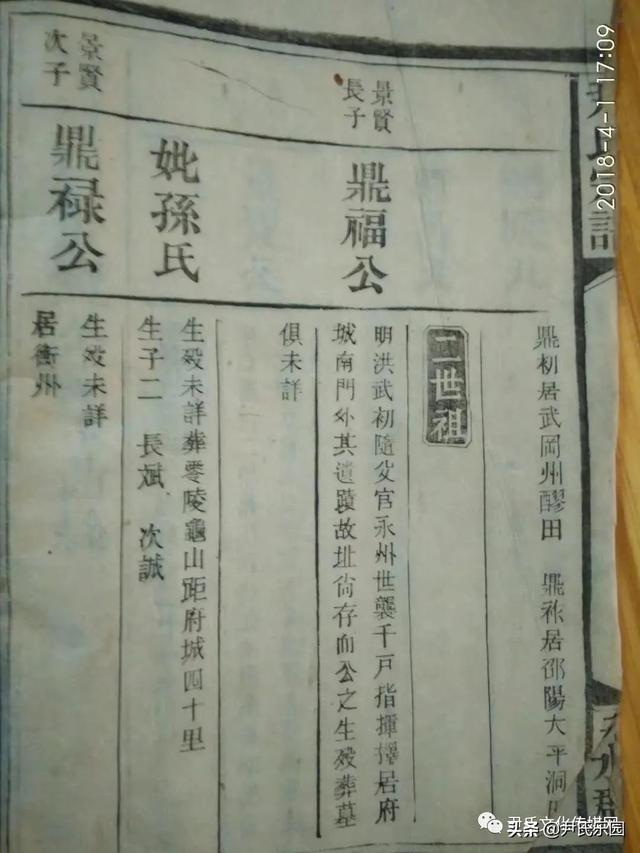 鼎初居武岡州醪田 鼎祚居邵陽大平洞
二世祖
景賢
長子
鼎福公
明洪武初隨父官永州世襲千戶指揮擇居府
城南門外其遺蹟故址尙存而公之生殁葬墓
俱未詳
妣孫氏
生殁未詳葬零陵龜山距府城四十里
生子二 長斌 次誠
景賢
次子
鼎祿公
生殁未詳
居衡州
2018-4-1 17:09
尹氏文化传媒网
头条 @尹氏乐园